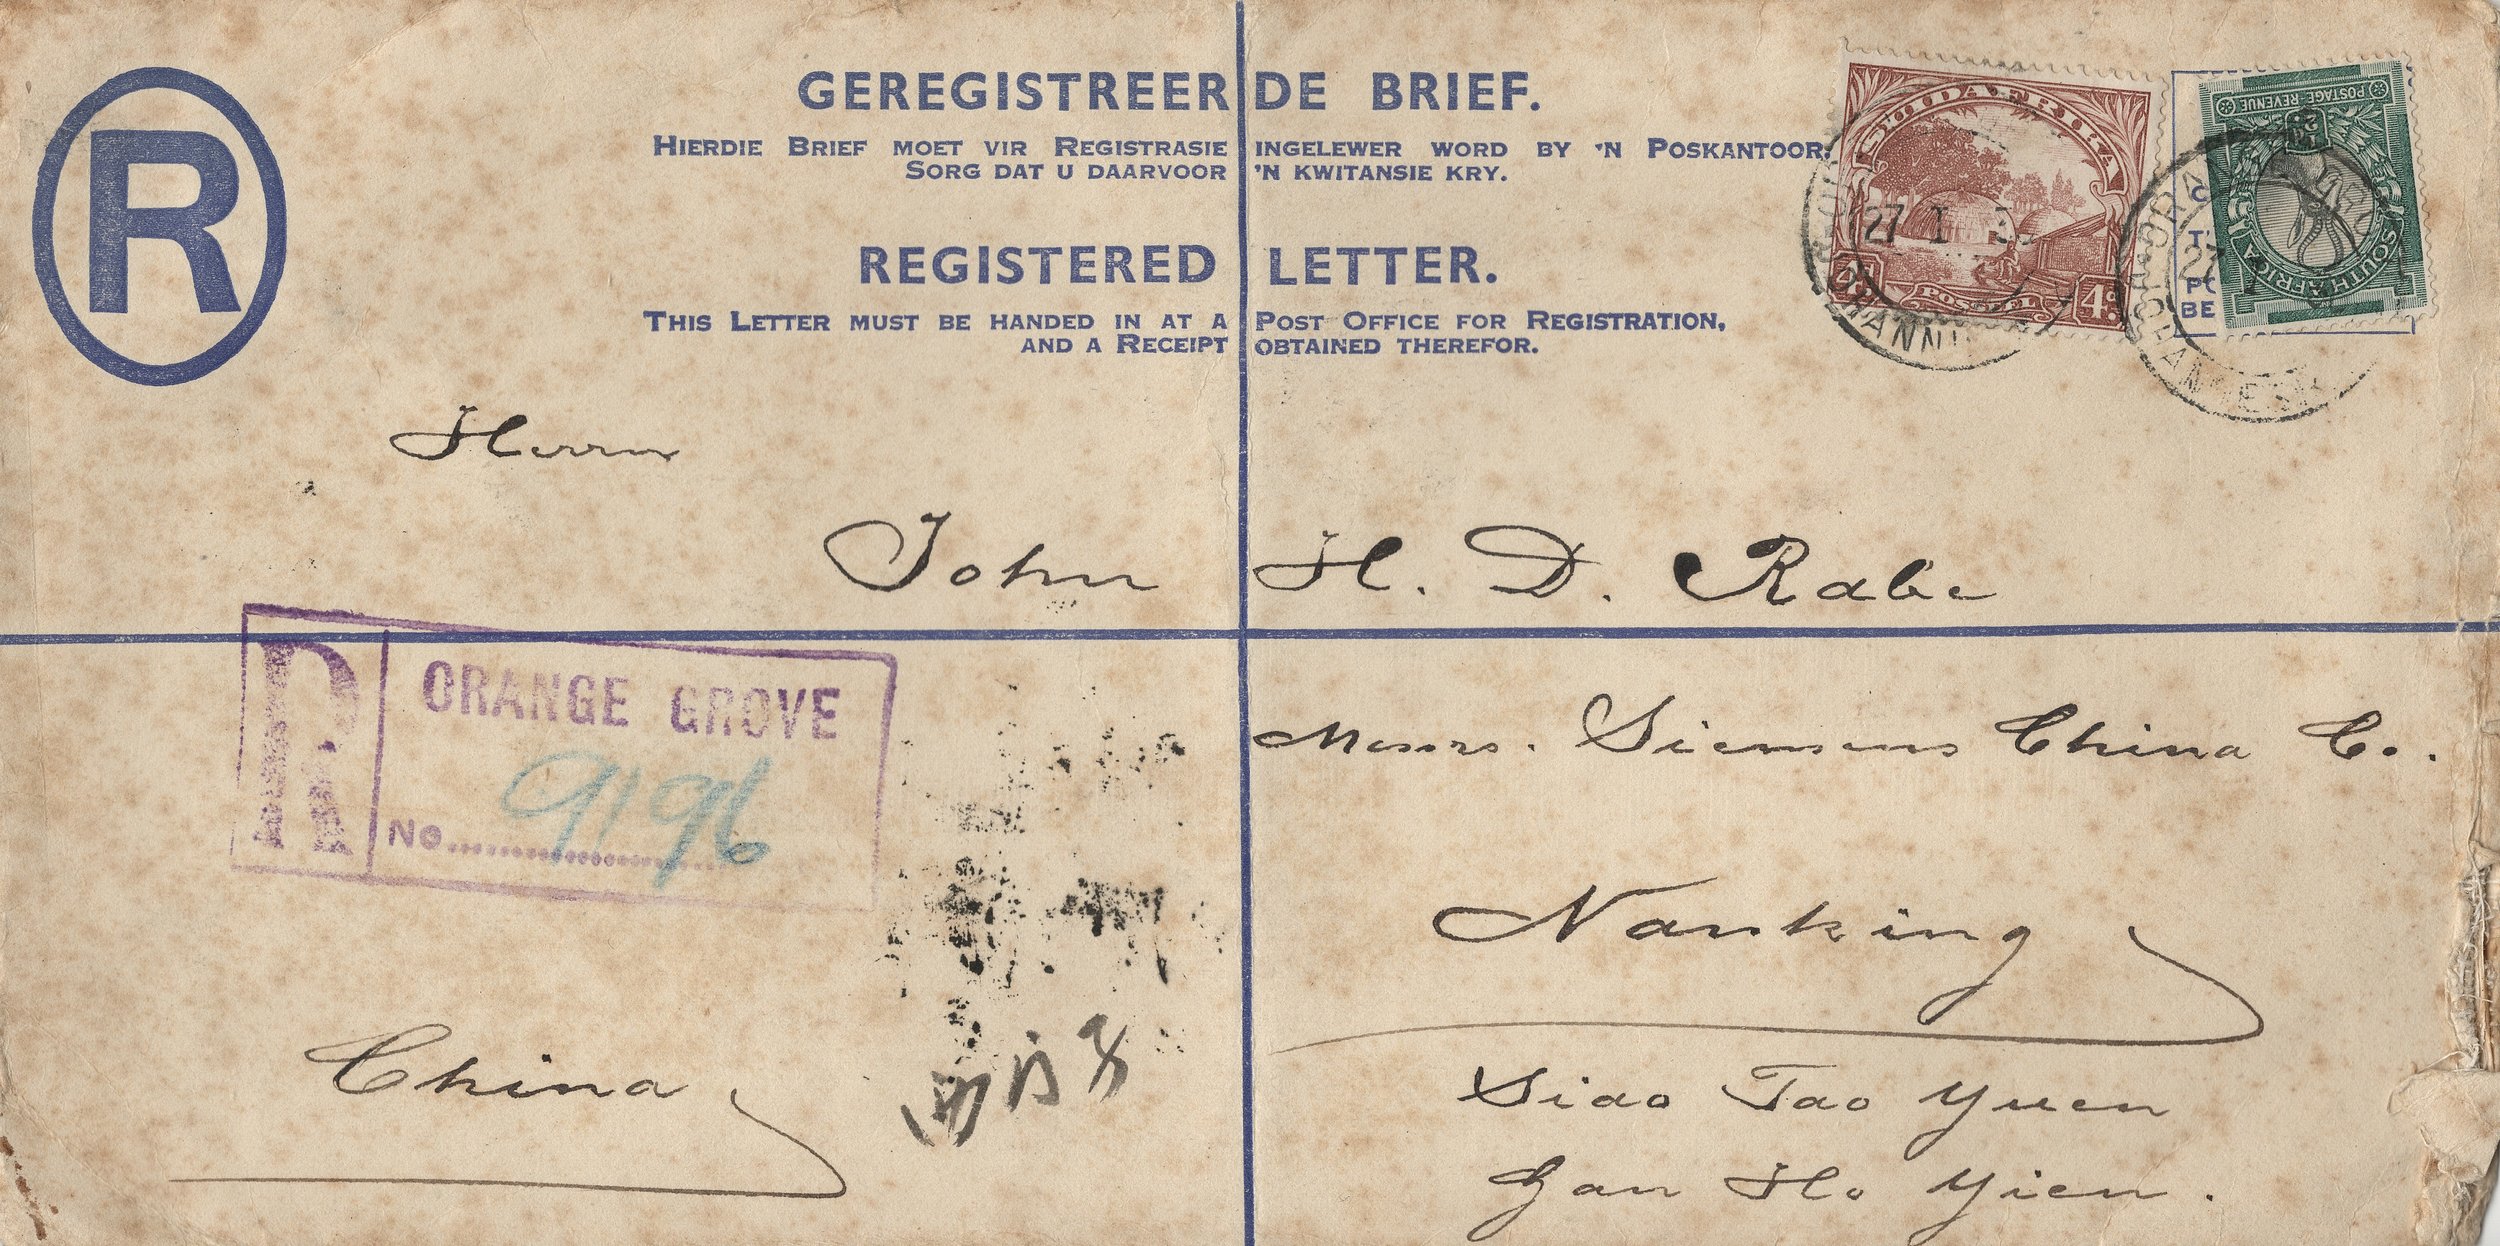 R
GEREGISTREERDE BRIEF.
HIERDIE BRIEF MOET VIR REGISTRASIE INGELEWER WORD BY 'N POSKANTOOR.
SORG DAT U DAARVOOR 'N KWITANSIE KRY.
REGISTERED LETTER.
THIS LETTER MUST BE HANDED IN AT A POST OFFICE FOR REGISTRATION,
AND A RECEIPT OBTAINED THEREFOR.
SUIDAFRIKA
POSSEËL 4d
27 I
POSTAGE REVENUE
SOUTH AFRICA
Herrn
John H. D. Rabe
R ORANGE GROVE
No. 9196
Messrs. Siemens China Co.
Nanking
China
Siao Tao Yuen
Gan Ho Yien.